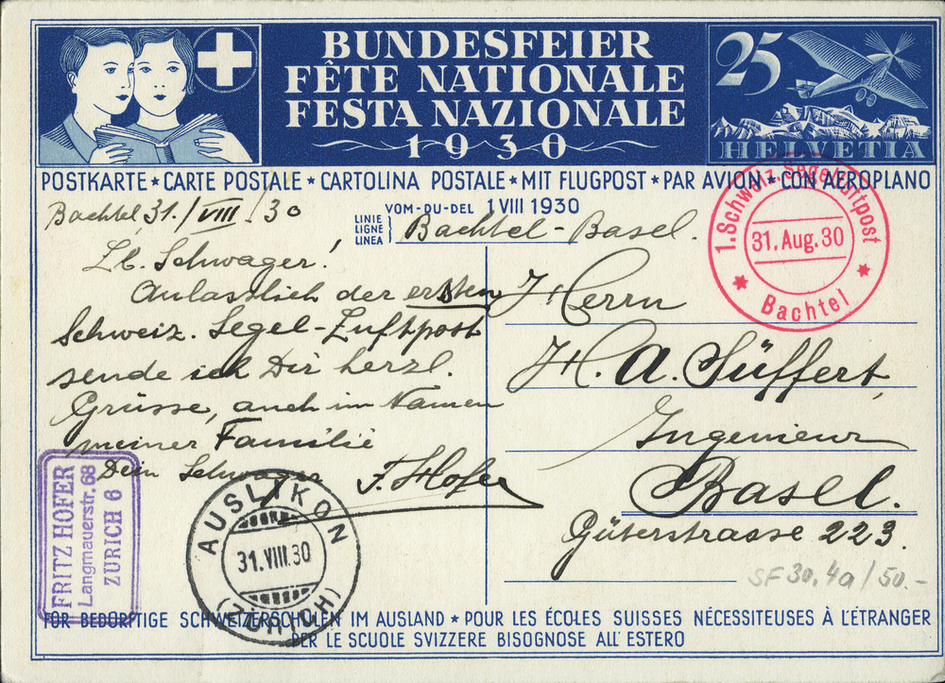 BUNDESFEIER
FÊTE NATIONALE
FESTA NAZIONALE
1930
25
HELVETIA
POSTKARTE ★ CARTE POSTALE ★ CARTOLINA POSTALE ★ MIT FLUGPOST ★ PAR AVION ★ CON AEROPLANO
VOM-DU-DEL 1 VIII 1930
LINIE
LIGNE
LINEA
Bachtel-Basel.
1. Schweiz. Segelluftpost
31. Aug. 30
Bachtel
Bachtel 31./VIII. 30
Lb. Schwager!
Anlässlich der ersten
Schweiz. Segel-Luftpost
sende ich Dir herzl.
Grüsse, auch im Namen
meiner Familie
Dein Schwager F. Hofer
Herrn
H. A. Süffert
Ingenieur
Basel.
Güterstrasse 223.
SF 30.4a/50.-
FRITZ HOFER
Langmauerstr. 68
ZÜRICH 6
AUSLIKON
31.VIII.30
(ZÜRICH)
FÜR BEDÜRFTIGE SCHWEIZERSCHULEN IM AUSLAND ★ POUR LES ÉCOLES SUISSES NÉCESSITEUSES À L'ÉTRANGER
PER LE SCUOLE SVIZZERE BISOGNOSE ALL' ESTERO